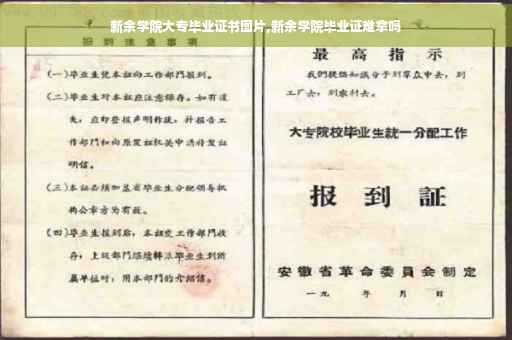 新余学院大专毕业证书图片,新余学院毕业证难拿吗
报到注意事项
(一)毕业生凭本证向工作部门报到。
(二)毕业生对本证应注意保存。如有遗
失,应即登报声明作废,并报告工
作部门和向原发证机关申请补发证
明信。
(三)本证必须加盖省毕业生分配领导机
构公章方为有效。
(四)毕业生报到后,本证交工作部门收
存;上级部门继续转派毕业生到所
属单位时,用本部门的介绍信。
最高指示
我们提倡知识分子到群众中去,到
工厂去,到农村去。
大专院校毕业生统一分配工作
报到証
安徽省革命委員会制定
一九 年 月 日